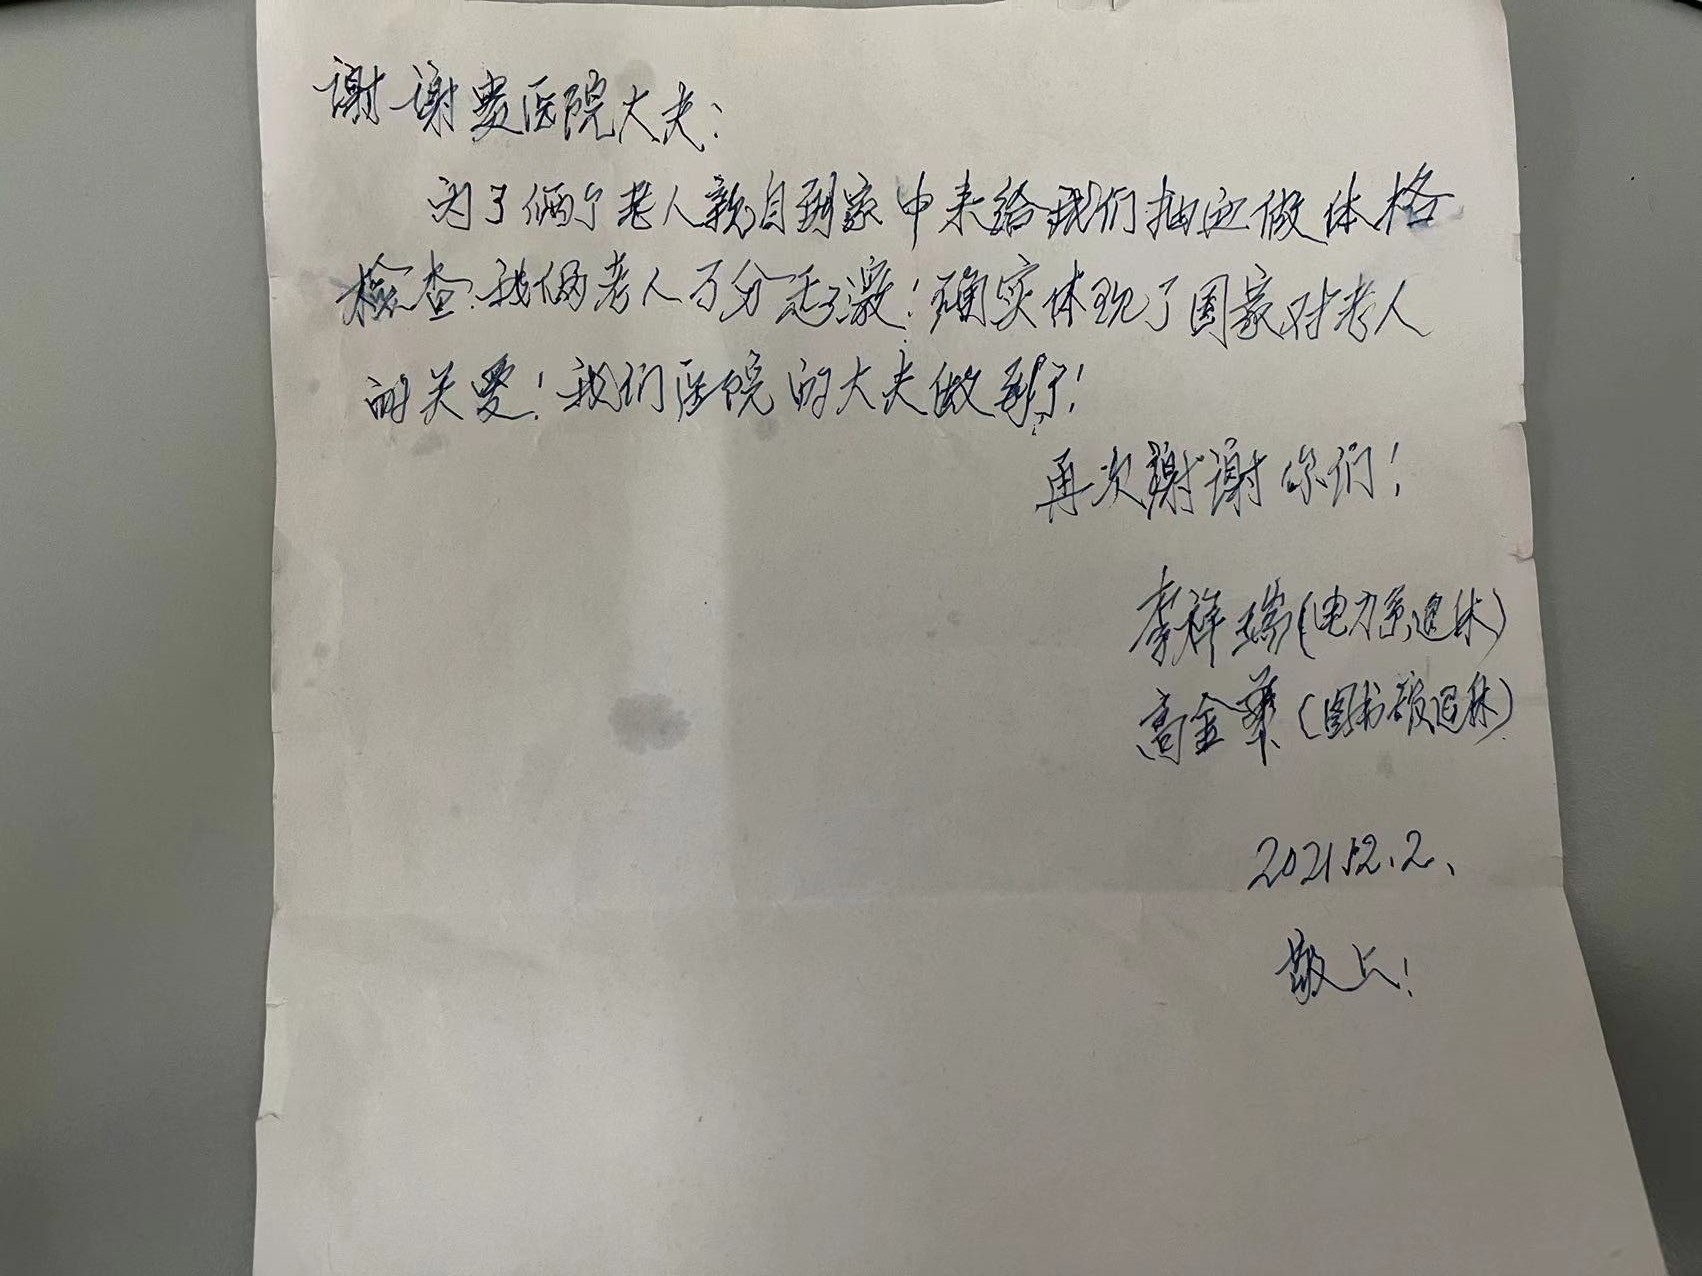 谢谢贵医院大夫:
为了俩个老人亲自到家中来给我们抽血做体格
检查.我俩老人万分感激!确实体现了国家对老人
的关爱!我们医院的大夫做到了!
再次谢谢你们!
李祥瑞(电力系退休)
高金华(图书馆退休)
2021.12.2.
敬上!